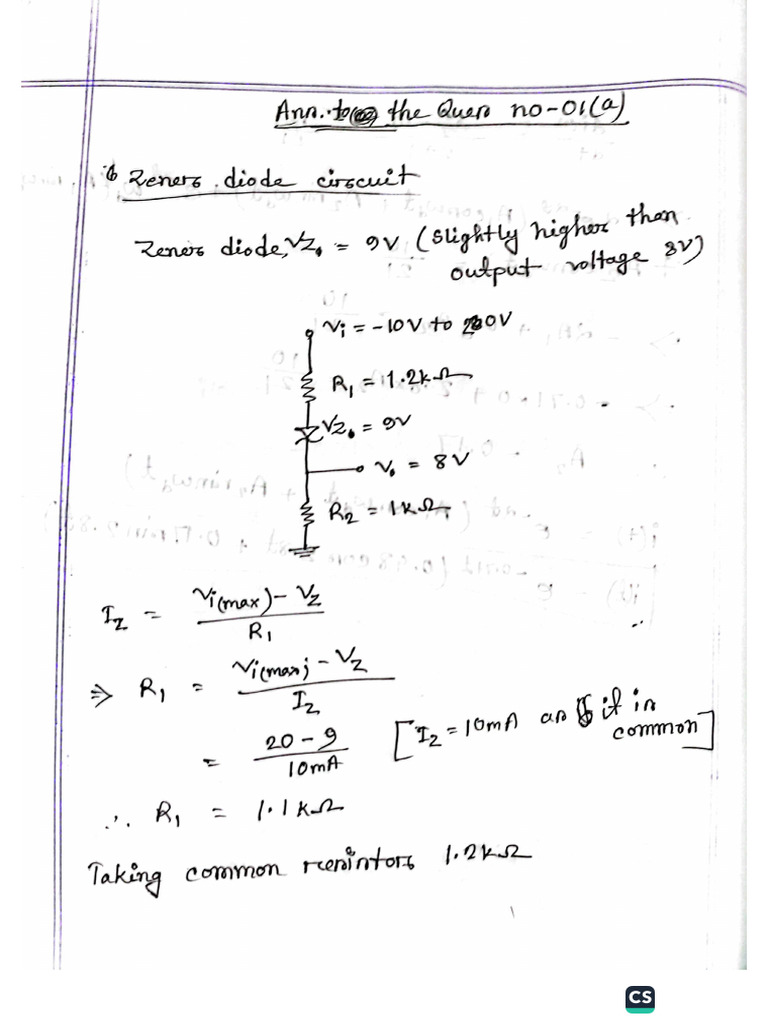 Ann. to the Quen no-01(a)
Zener diode circuit
Zener diode, Vz₀ = 9V (slightly higher than
output voltage 8V)
Vi = -10V to 20V
R₁ = 1.2kΩ
Vz₀ = 9V
V₀ = 8V
R₂ = 1kΩ
Iz = (Vi(max) - Vz) / R₁
⇒ R₁ = (Vi(max) - Vz) / Iz
= (20 - 9) / 10mA [Iz = 10mA as it is
common]
∴ R₁ = 1.1kΩ
Taking common resistors 1.2kΩ
CS